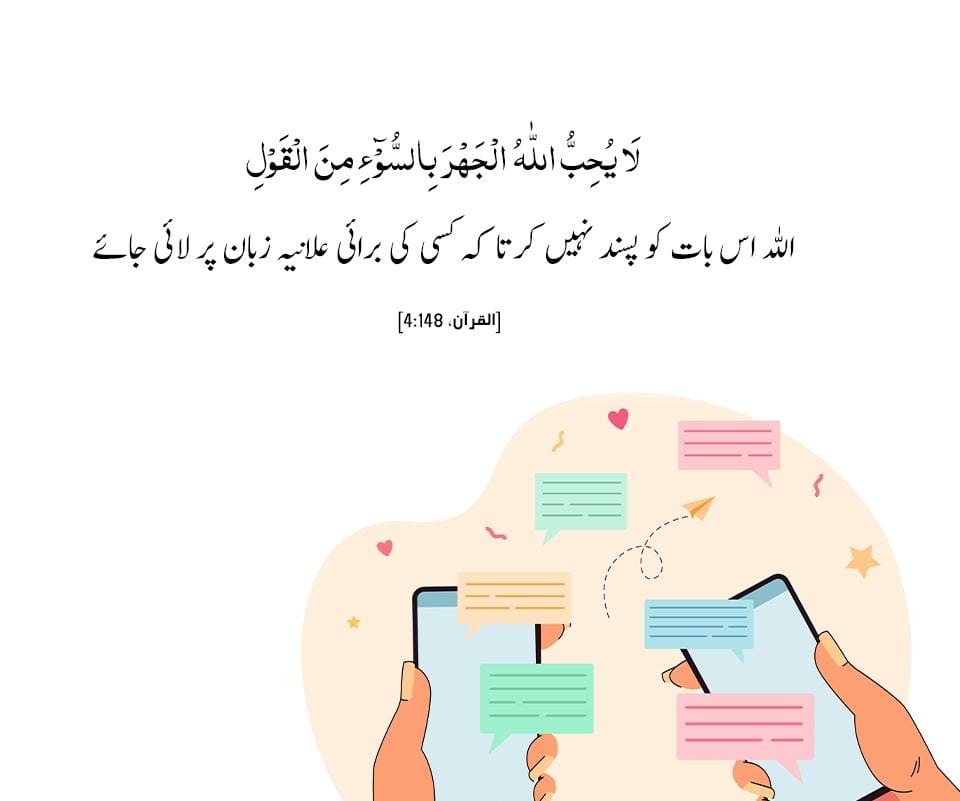 لَا يُحِبُّ اللّٰهُ الْجَهْرَ بِالسُّوْٓءِ مِنَ الْقَوْلِ
اللہ اس بات کو پسند نہیں کرتا کہ کسی کی برائی علانیہ زبان پر لائی جائے
[القرآن، 4:148]